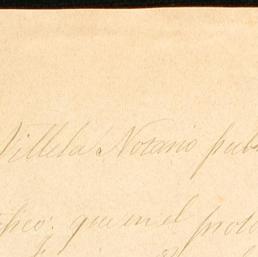 Villela Notario pub
tifico: que en el proto